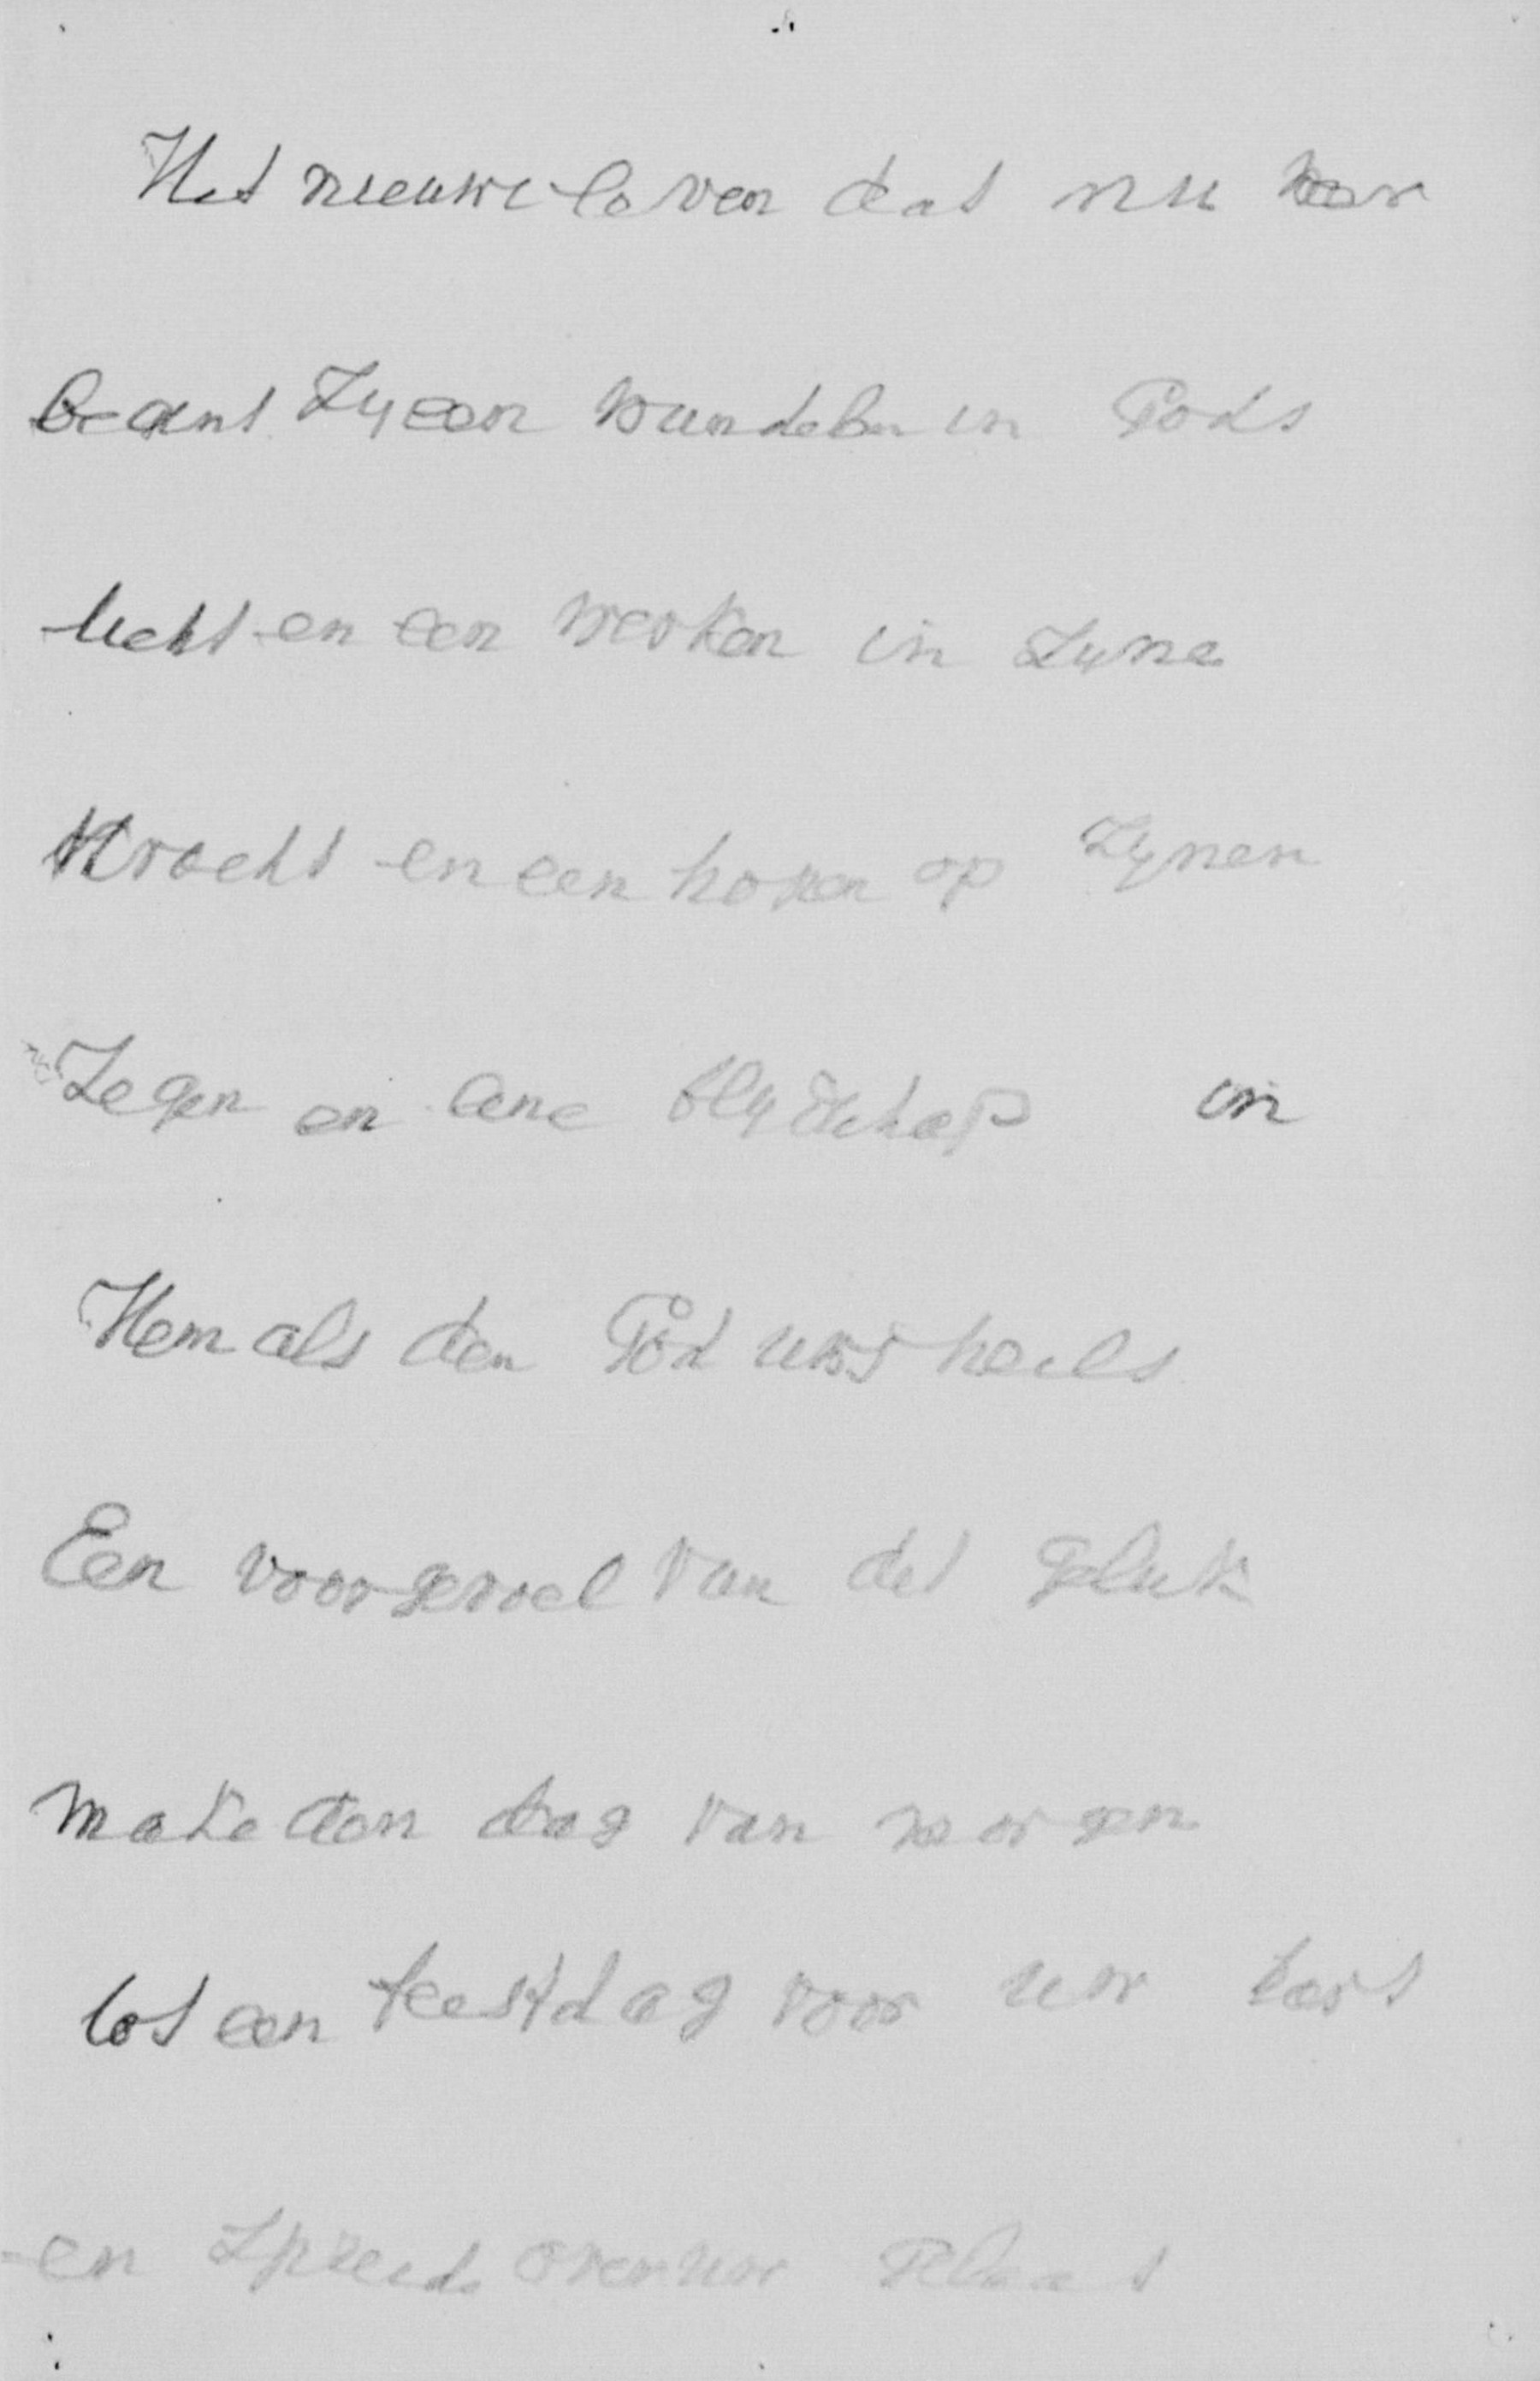 Het nieuwe leven dat nu voor
begint Zy een wandelen in Gods
licht en een werken in Zyne
Kracht en een hopen op Zynen
Zegen en eene blydschap in
Hem als den God uws heils
Een voorgevoel van dit geluk
make den dag van morgen
tot een feestdag voor uw hart
en spreide over uw gelaat